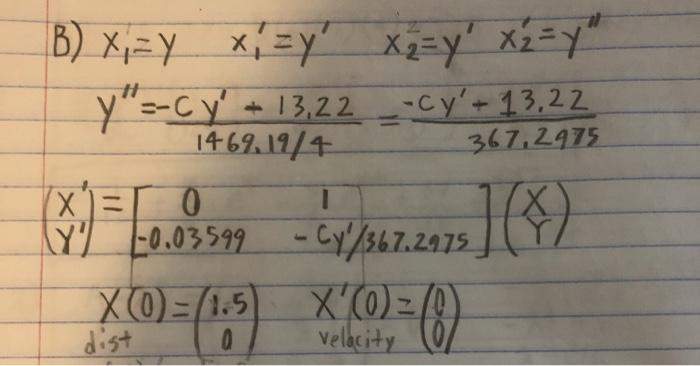 B) x₁=y x₁'=y' x₂=y' x₂'=y"
y"=-Cy' + 13.22 / 1469.19/4 = -Cy' + 13.22 / 367.2975
(X' Y') = [0 1 -0.03599 -Cy'/367.2975] (X Y)
X(0) = (1.5 0) X'(0) = (0 0)
dist velocity